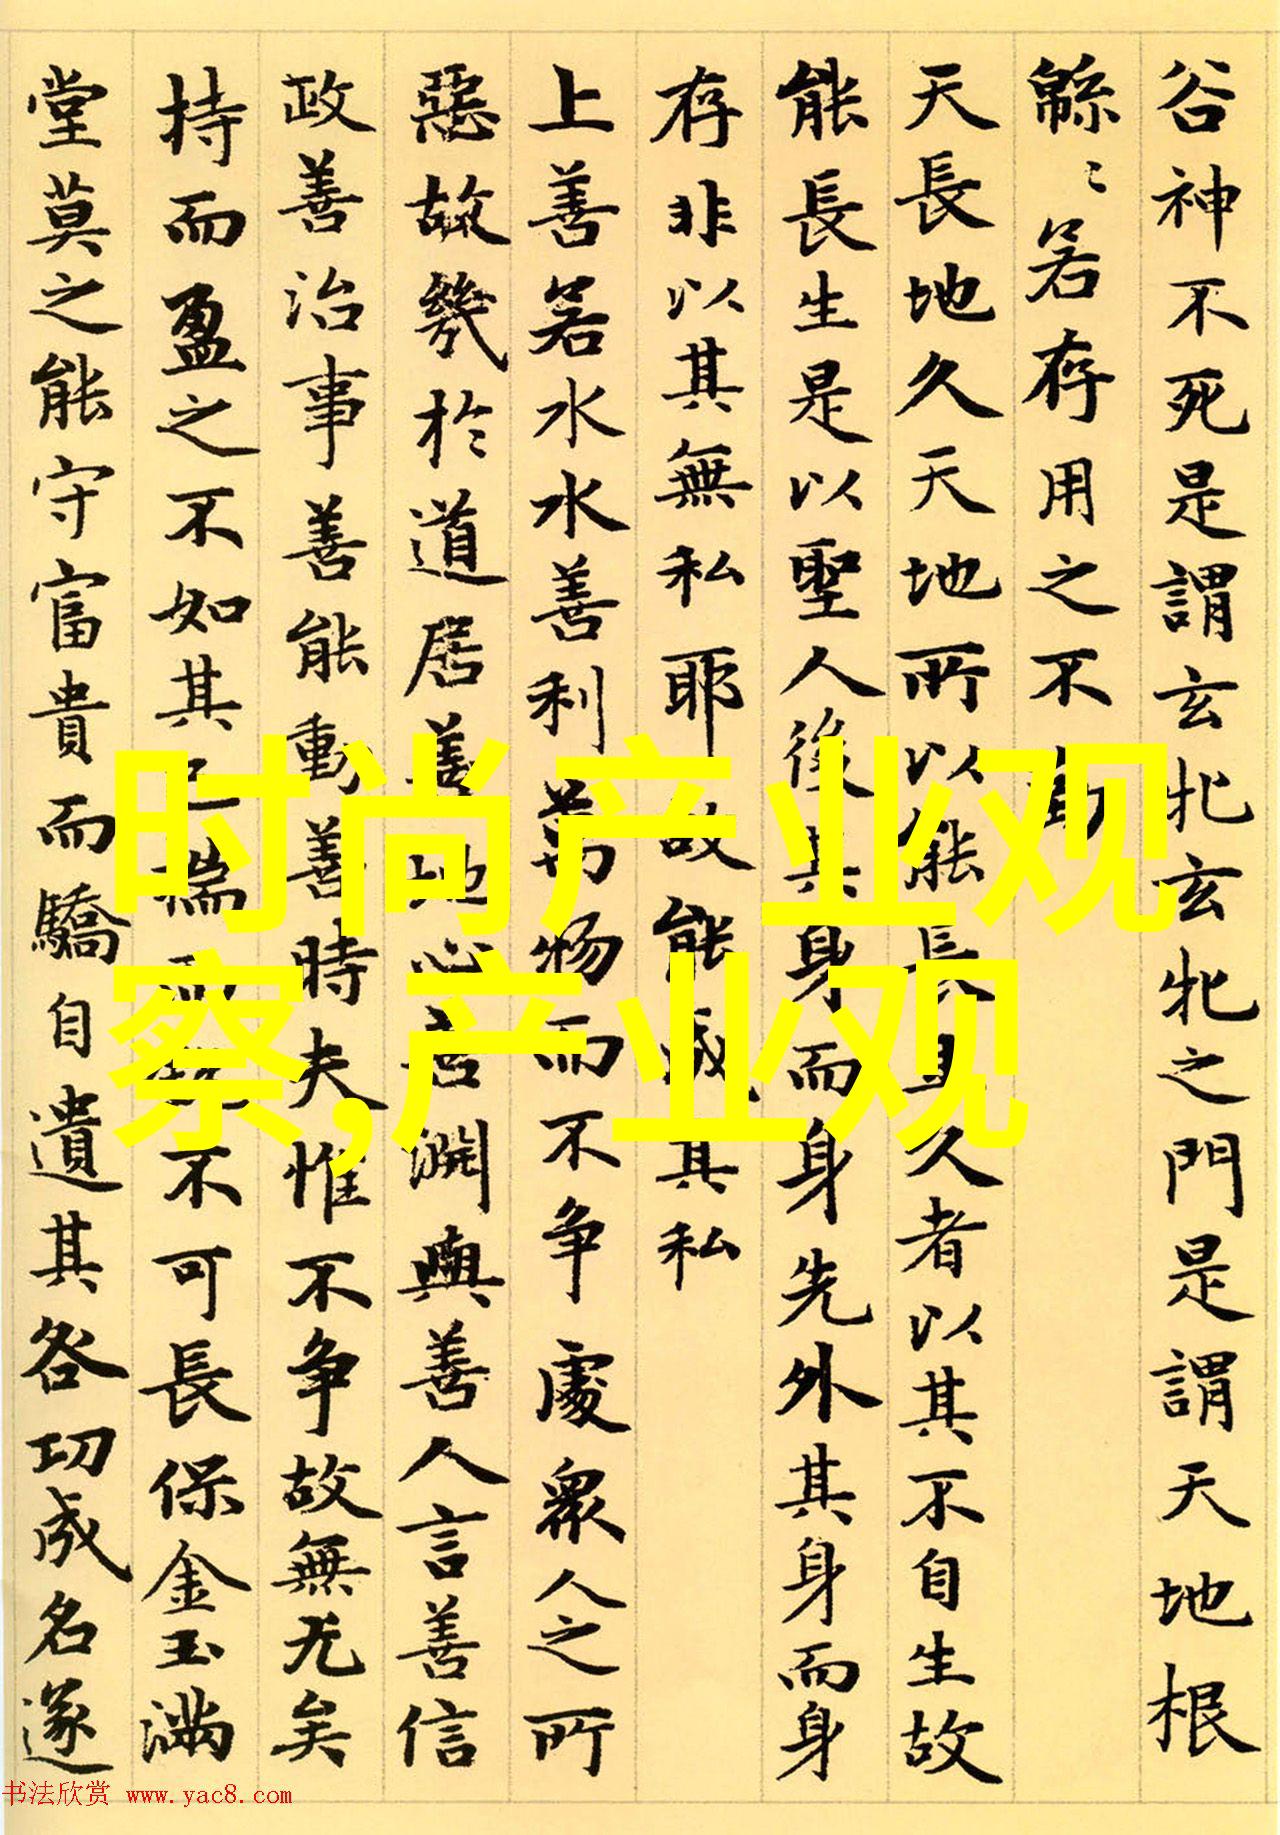 谷神不死是謂玄牝玄牝之門是謂天地根
緜〻若存用之不勤
天長地久天地所以能長且久者以其不自生故
能長生是以聖人後其身而身先外其身而身
存非以其無私耶故能成其私
上善若水水善利萬物而不争處衆人之所
惡故幾於道居善地心善淵與善人言善信
政善治事善能動善時夫惟不争故無尤矣
持而盈之不如其已揣而銳不可長保金玉滿
堂莫之能守富貴而驕自遺其咎功成名遂
时尚产业观
察,产业观
书法欣赏 www.yac8.com